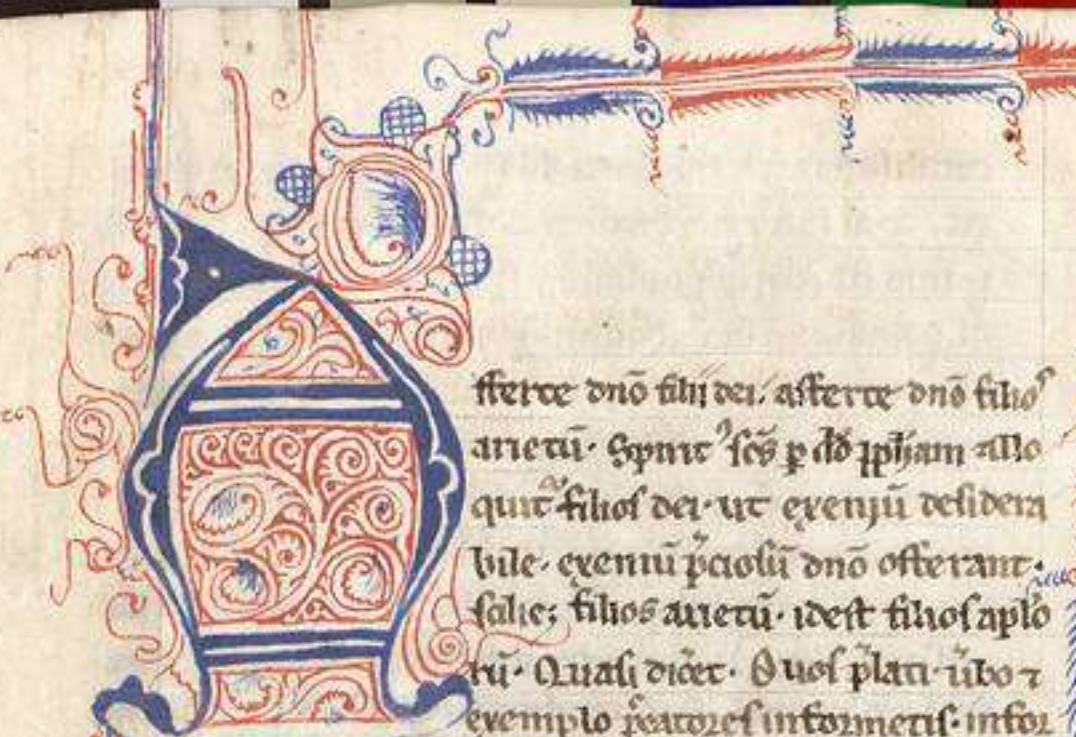 Afferte dnō filii dei, afferte dnō filioſ
arietū. Spirit᾽ ſc̄s ꝑ dd̄ ꝓph̄am allo
quit᷑ filioſ dei ut exeniū deſidera
bile, exeniū p̄cioſū dnō offerant.
ſcilic; filios arietū. ideſt filioſ aplo
rū. Quaſi dic̄et. Quoſ p̄lati ūbo ⁊
exemplo informetiſ. infor